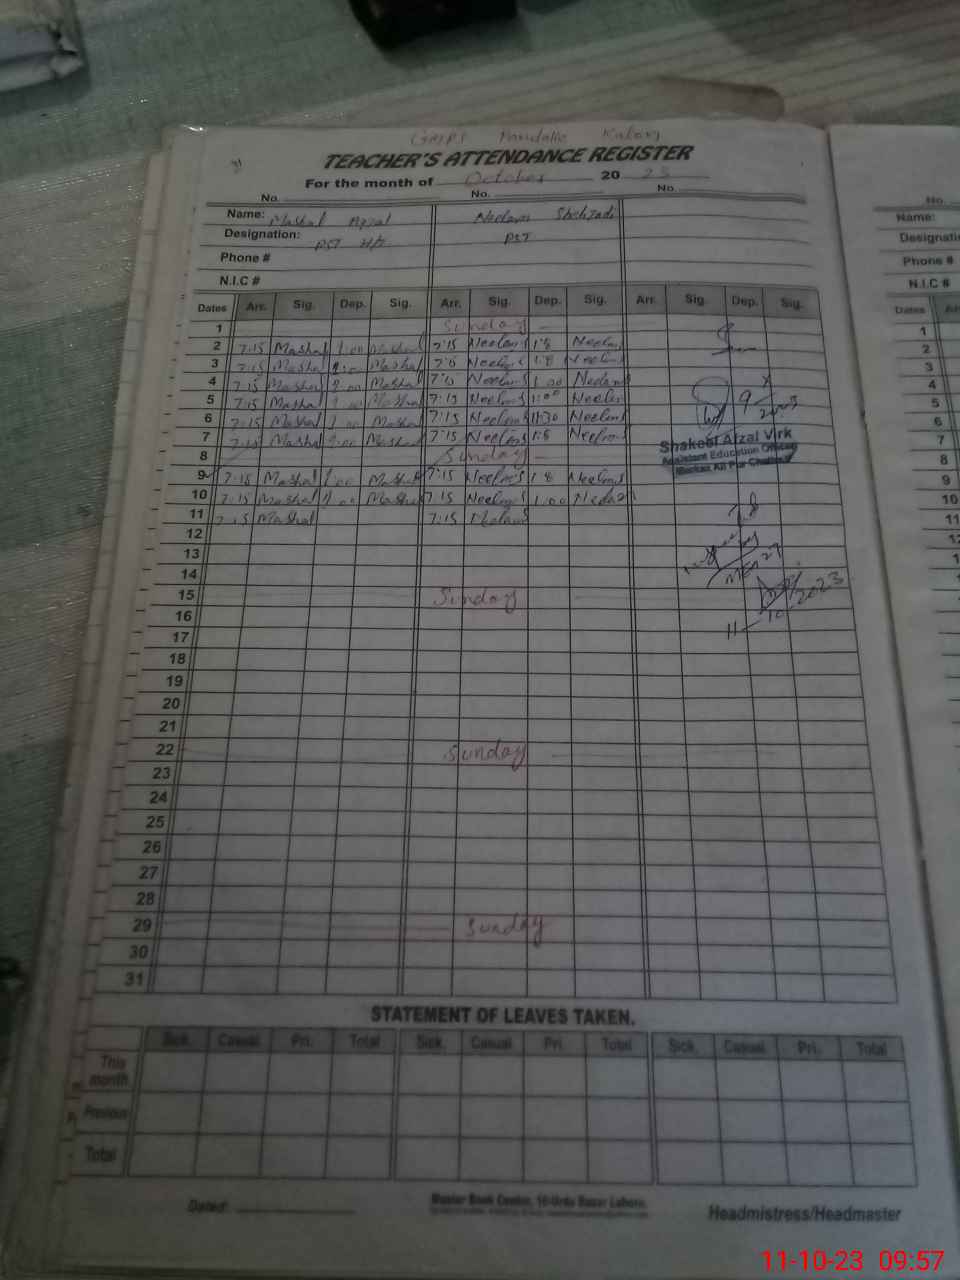 GMPS Kalan
TEACHER'S ATTENDANCE REGISTER
For the month of October 20 23
No. No. No.
Name: Mashal Afzal Neelam Shehzadi
Designation: PST H/T PST
Phone #
N.I.C #
Dates Arr. Sig. Dep. Sig. Arr. Sig. Dep. Sig. Arr. Sig. Dep. Sig.
1 Sunday
2 7:15 Mashal 1:00 Mashal 7:15 Neelam 1:8 Neelam
3 7:15 Mashal Mashal Neelam 1:8 Neelam
4 7:15 Mashal Mashal Neelam 1:00 Neelam
5 7:15 Mashal Mashal 7:15 Neelam 1:00 Neelam
6 7:15 Mashal Mashal 7:15 Neelam Neelam
7 Mashal Mashal 7:15 Neelam 1:8 Neelam
8 Sunday
9 7:15 Mashal 1:00 Mashal 7:15 Neelam 1 8 Neelam
10 7:15 Mashal Mashal 7:15 Neelam 1:00 Neelam
11 7:15 Mashal 7:15 Neelam
12
13
14
15 Sunday
16
17
18
19
20
21
22 Sunday
23
24
25
26
27
28
29 Sunday
30
31
Shakeel Afzal Virk
Assistant Education Officer
11-10-2023
STATEMENT OF LEAVES TAKEN.
Sick. Casual Pri. Total Sick. Casual Pri. Total Sick. Casual Pri. Total
This month
Previous
Total
Dated:
Master Book Centre, 16-Urdu Bazar Lahore.
Headmistress/Headmaster
No.
Name:
Phone #
N.I.C #
Dates
1
2
3
4
5
6
7
8
9
10
11
11-10-23 09:57